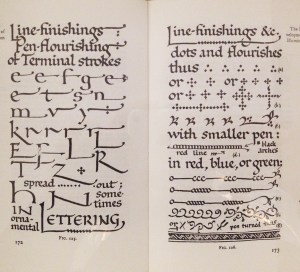 Line-finishings:
Pen-flourishing
of Terminal strokes
e e f g e
e t s n
m v y r
k r r l R
E J L T R
T Z
h spread ........ out;
N some-
IN times
orna-
mental LETTERING,
172
FIG. 125.
Line-finishings &c,
dots and flourishes
thus
or or or
or
with smaller pen:
red line black
in red, blue, or green:
pen turned
FIG. 126.
173